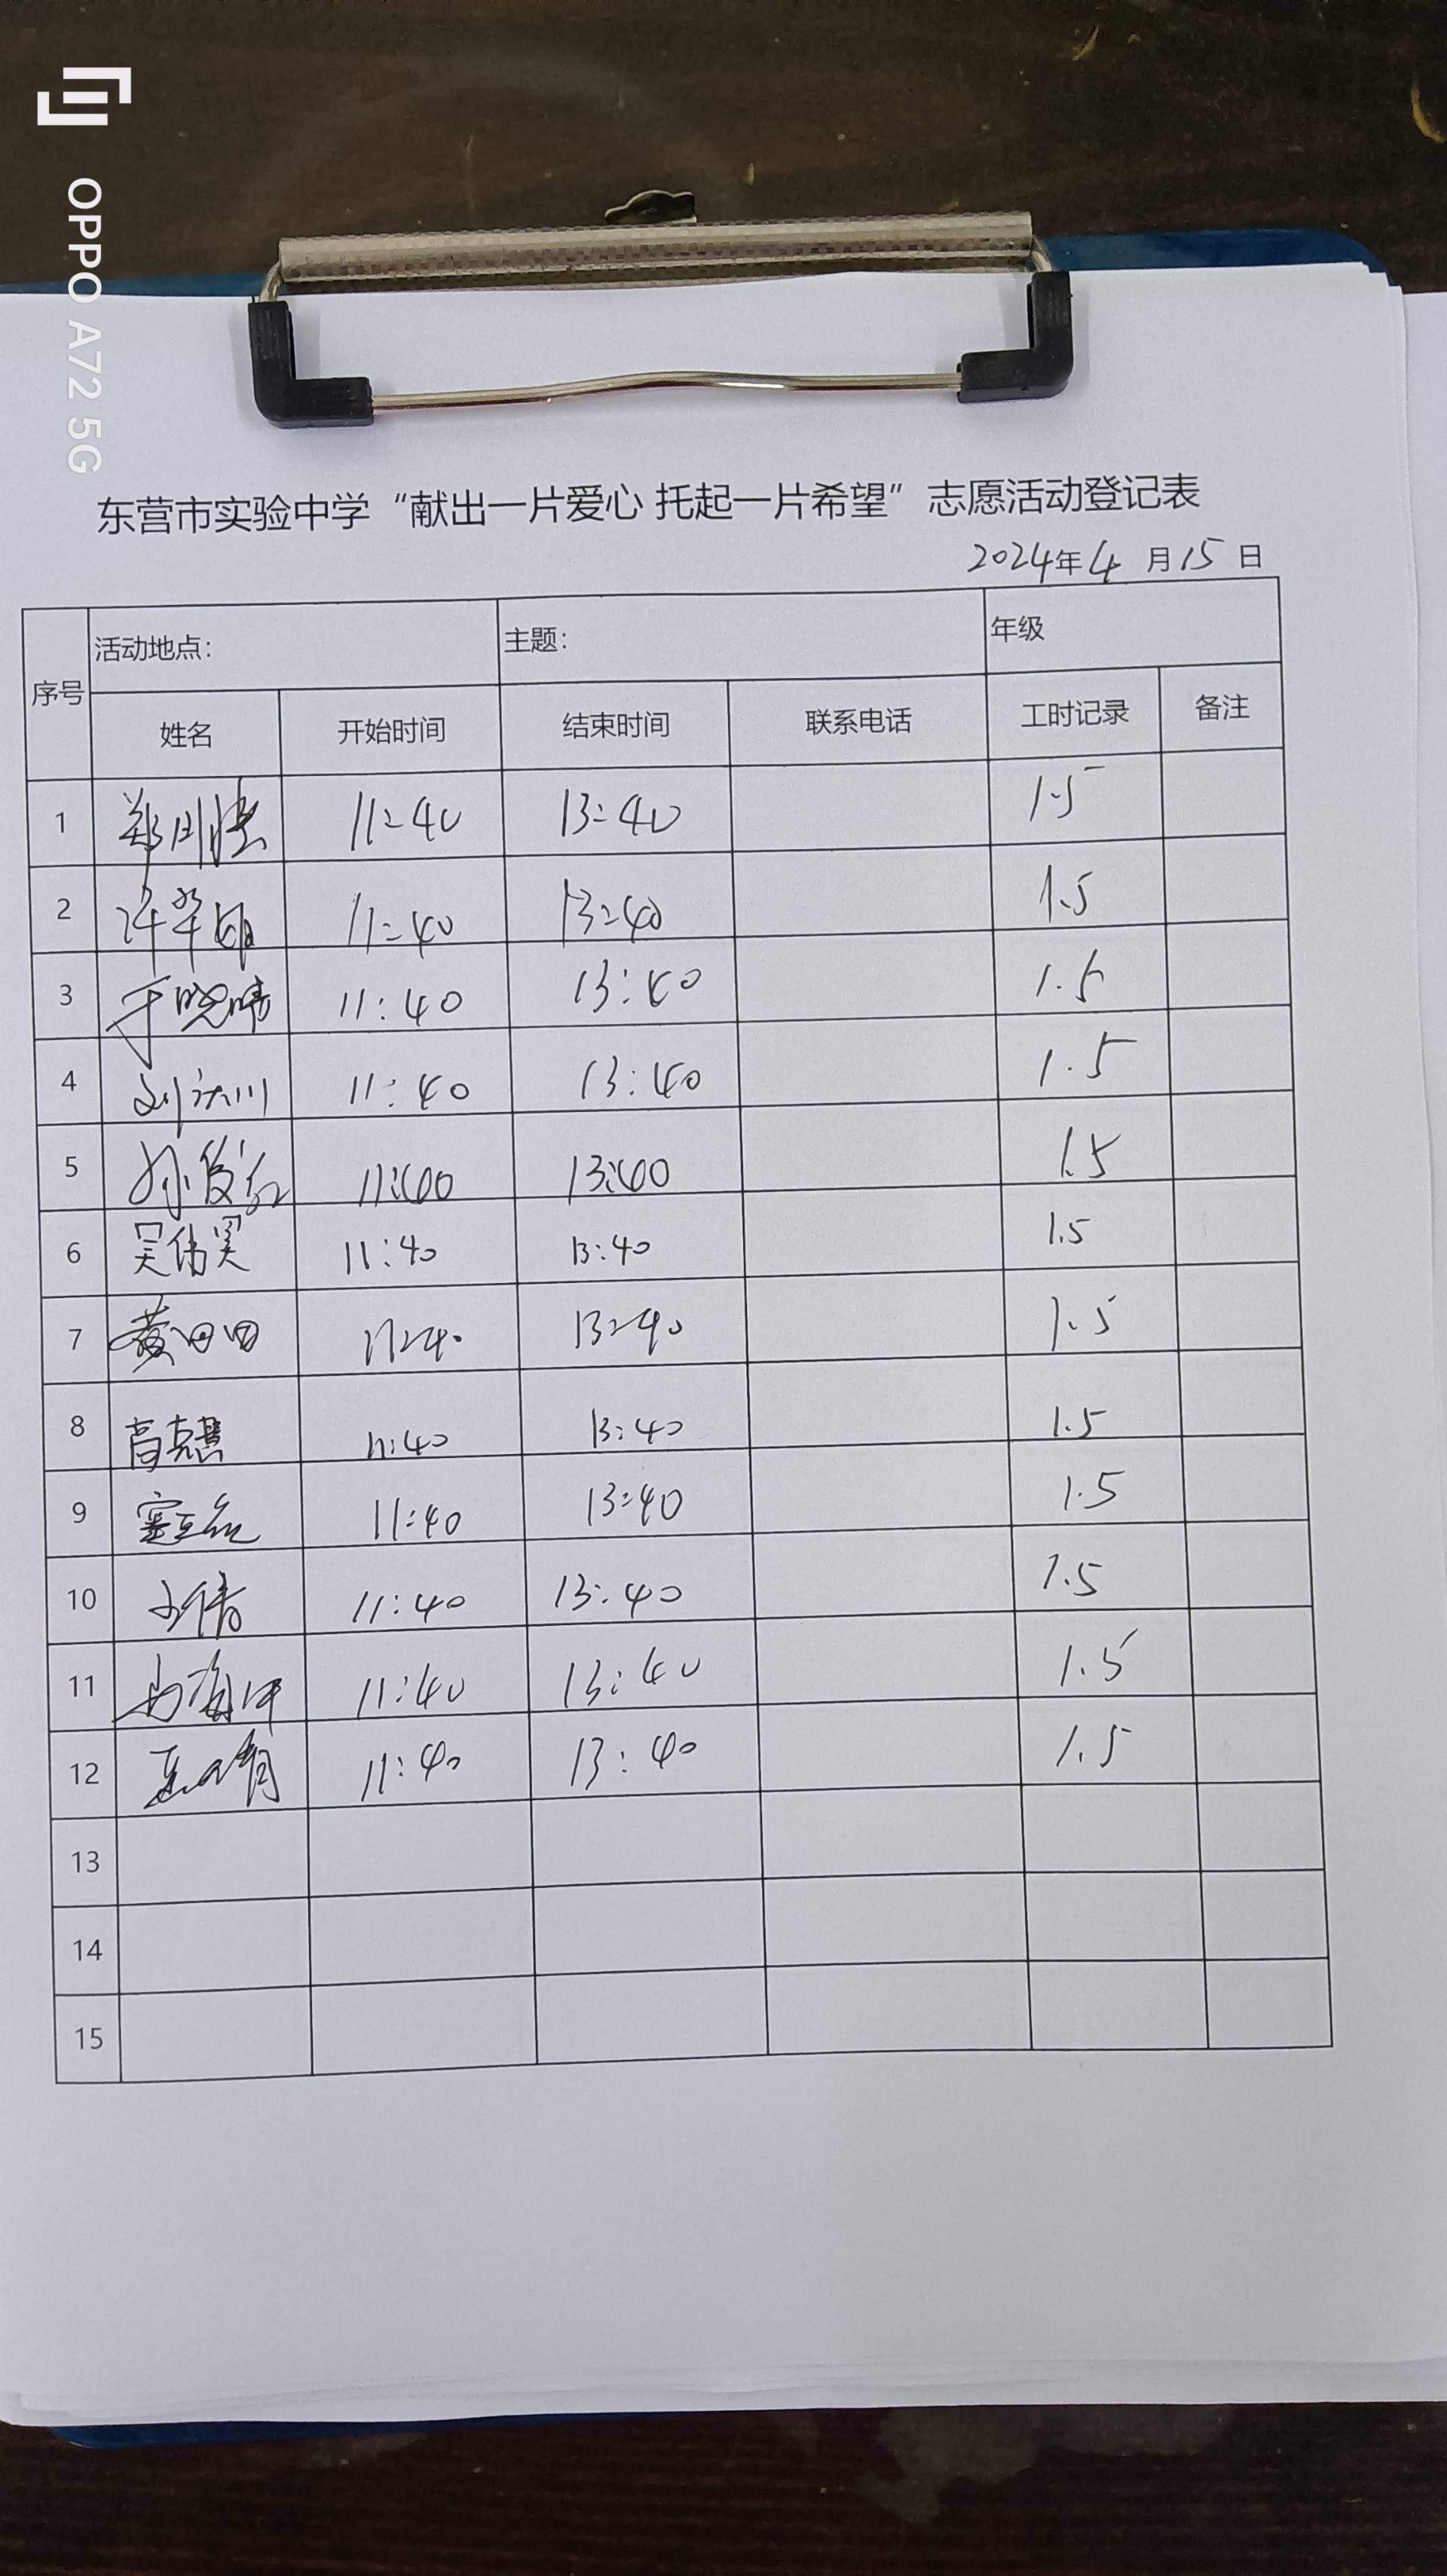 OPPO A72 5G
东营市实验中学“献出一片爱心 托起一片希望”志愿活动登记表
2024年4月15日
序号 活动地点： 主题： 年级
姓名 开始时间 结束时间 联系电话 工时记录 备注
1 11:40 13:40 1.5
2 11:40 13:40 1.5
3 于晓晴 11:40 13:40 1.5
4 11:40 13:40 1.5
5 11:40 13:40 1.5
6 吴伟昊 11:40 13:40 1.5
7 黄田田 11:40 13:40 1.5
8 11:40 13:40 1.5
9 11:40 13:40 1.5
10 11:40 13:40 1.5
11 11:40 13:40 1.5
12 11:40 13:40 1.5
13
14
15